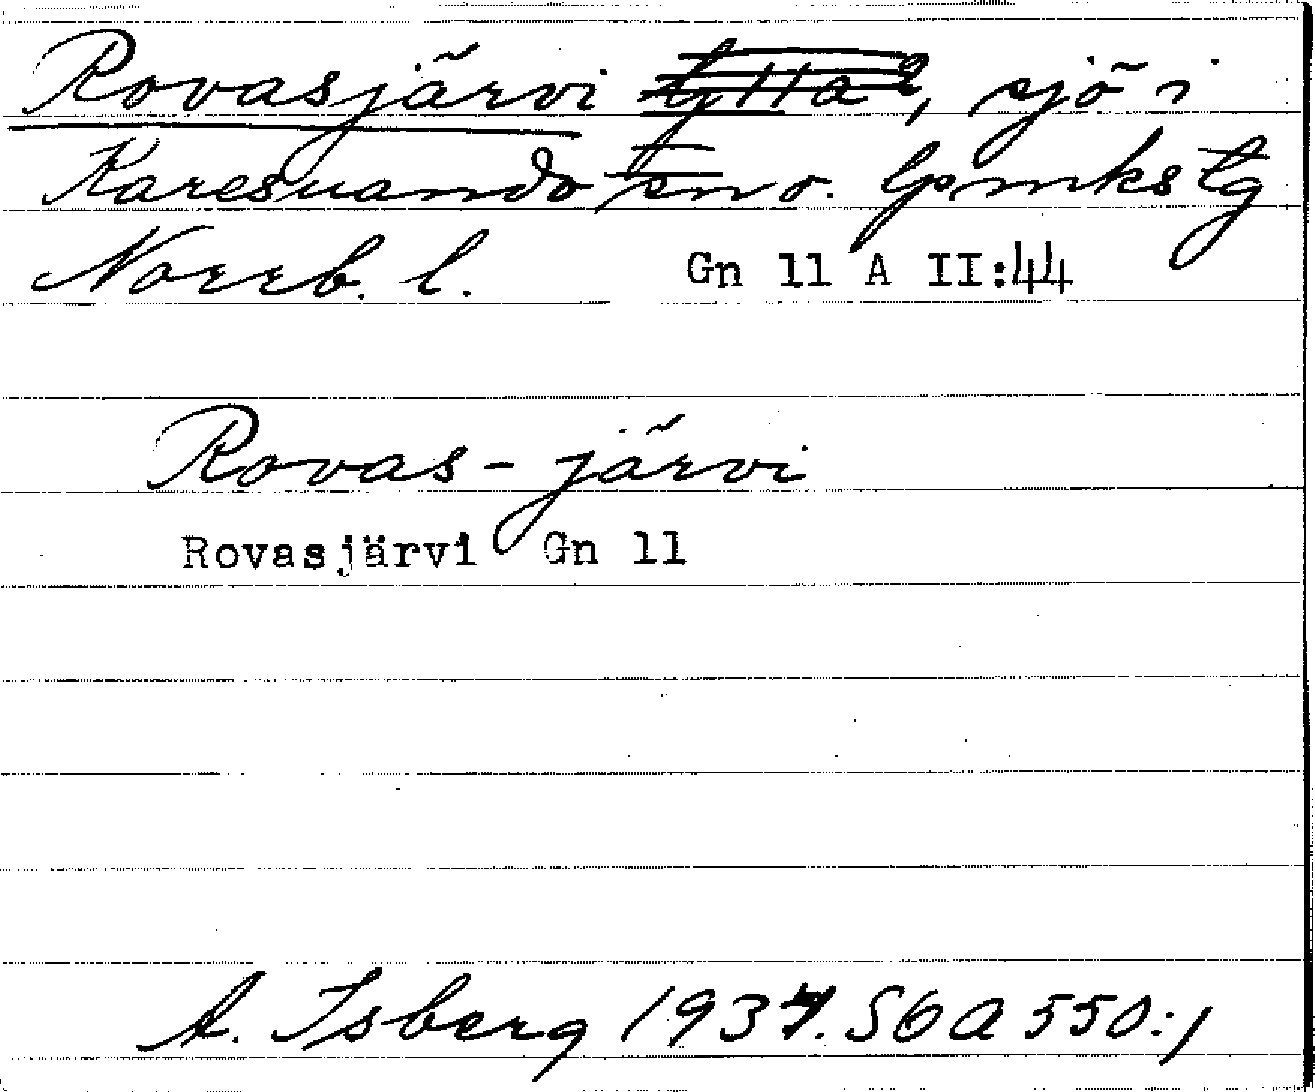 Rovasjärvi, sjö i
Karesuando sn o. lpmks tg
Norrb. l. Gn 11 A II:44
Rovas-järvi
Rovasjärvi Gn 11
A. Isberg 1937. S6a 550:1